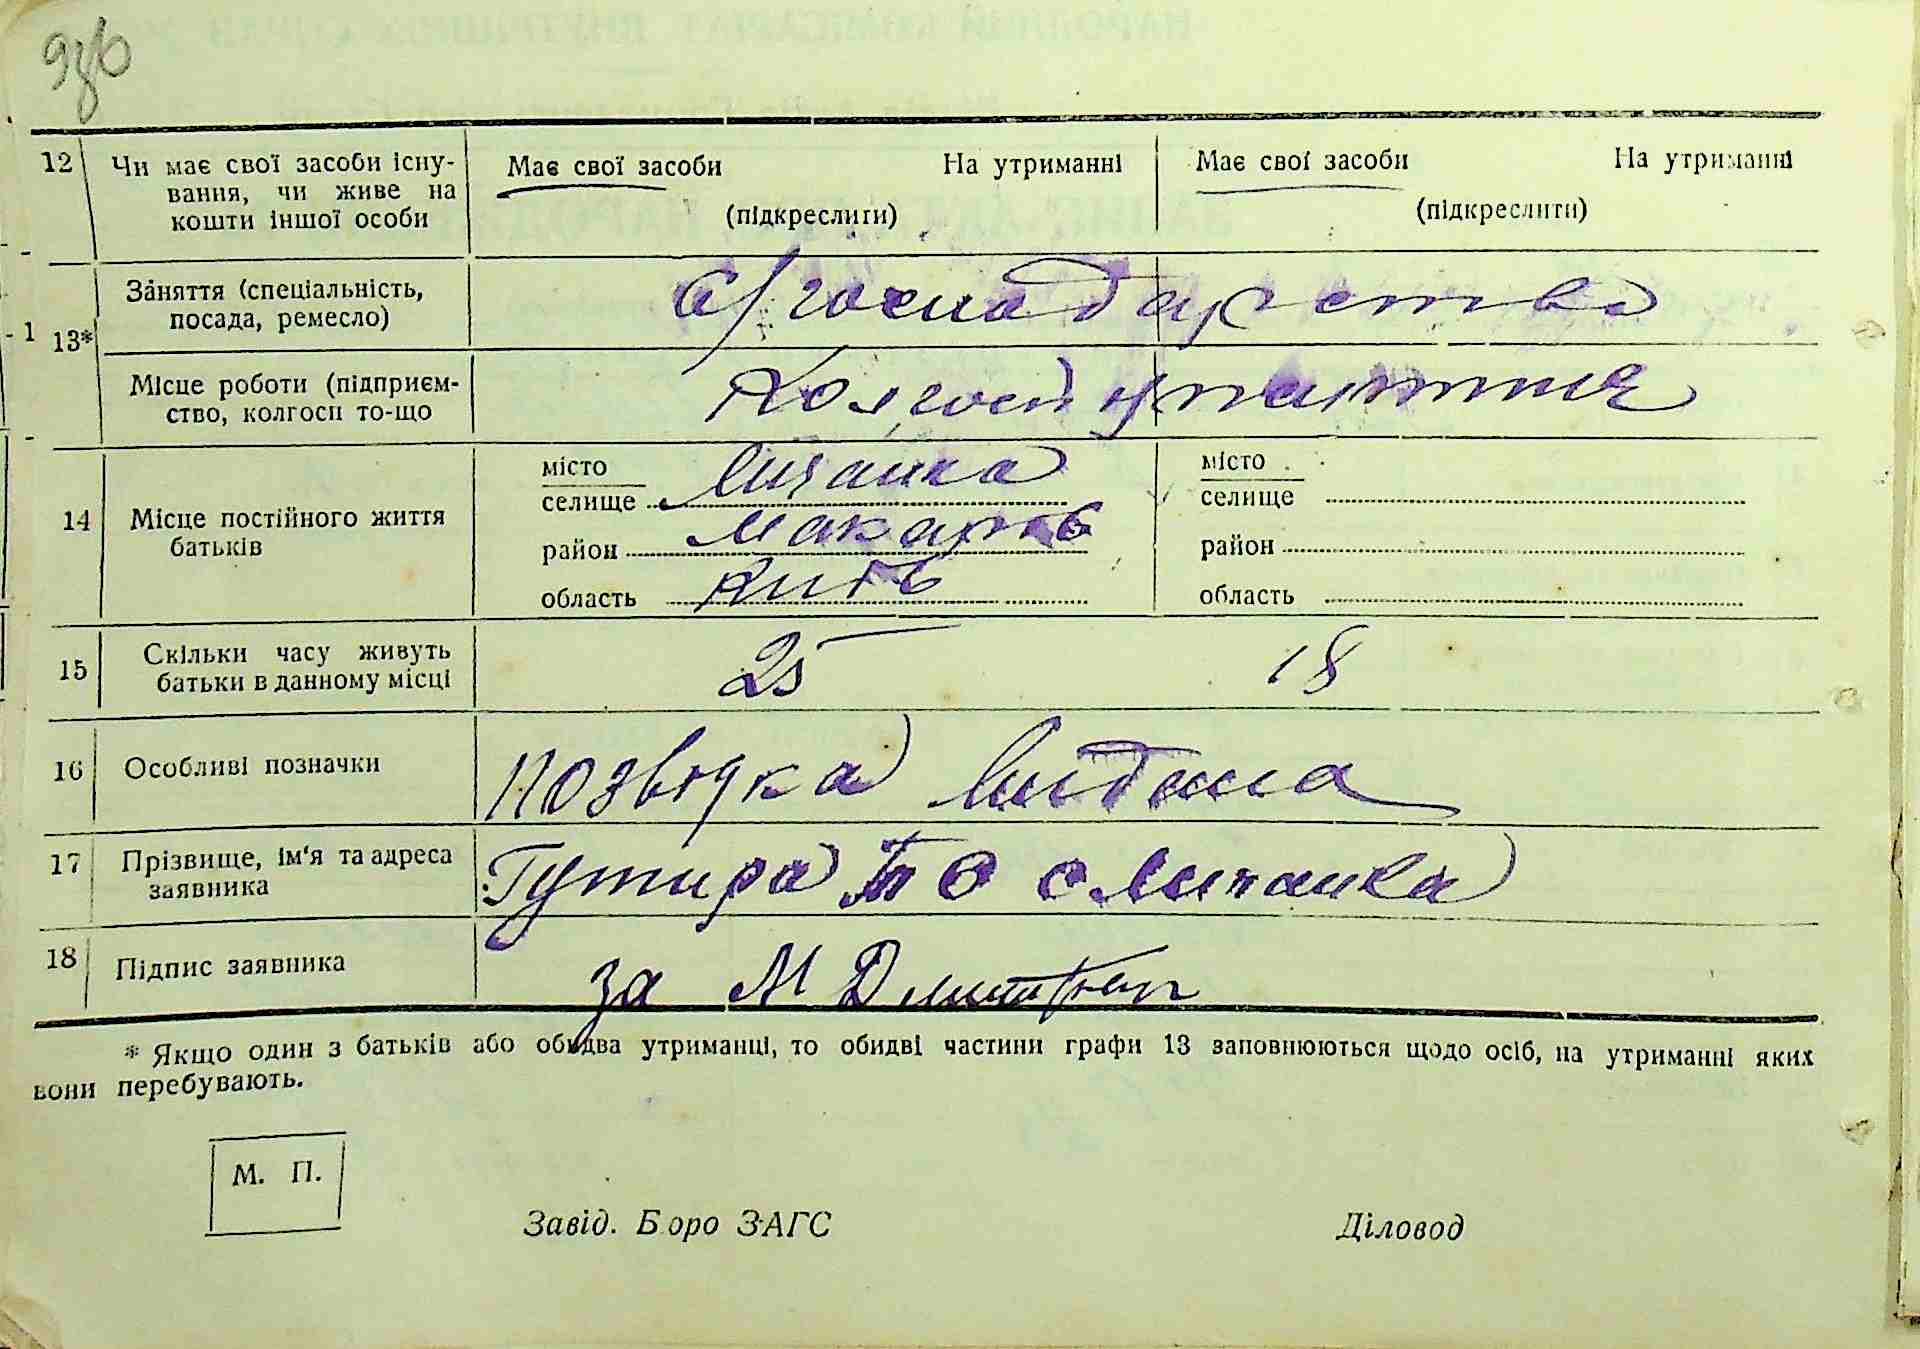 12 Чи має свої засоби існу-
вання, чи живе на
кошти іншої особи
Має свої засоби На утриманні
(підкреслити)
Має свої засоби На утриманні
(підкреслити)
13*
Заняття (спеціальність,
посада, ремесло)
с/господарство
Місце роботи (підприєм-
ство, колгосп то-що
Колгосп
14 Місце постійного життя
батьків
місто
селище Личанка
район Макарів
область Київ
місто
селище
район
область
15 Скільки часу живуть
батьки в данному місці
25 18
16 Особливі позначки
17 Прізвище, ім‘я та адреса
заявника
Гутира с Личанка
18 Підпис заявника
за М
* Якщо один з батьків або обидва утриманці, то обидві частини графи 13 заповнюються щодо осіб, на утриманні яких
вони перебувають.
М. П.
Завід. Бюро ЗАГС Діловод